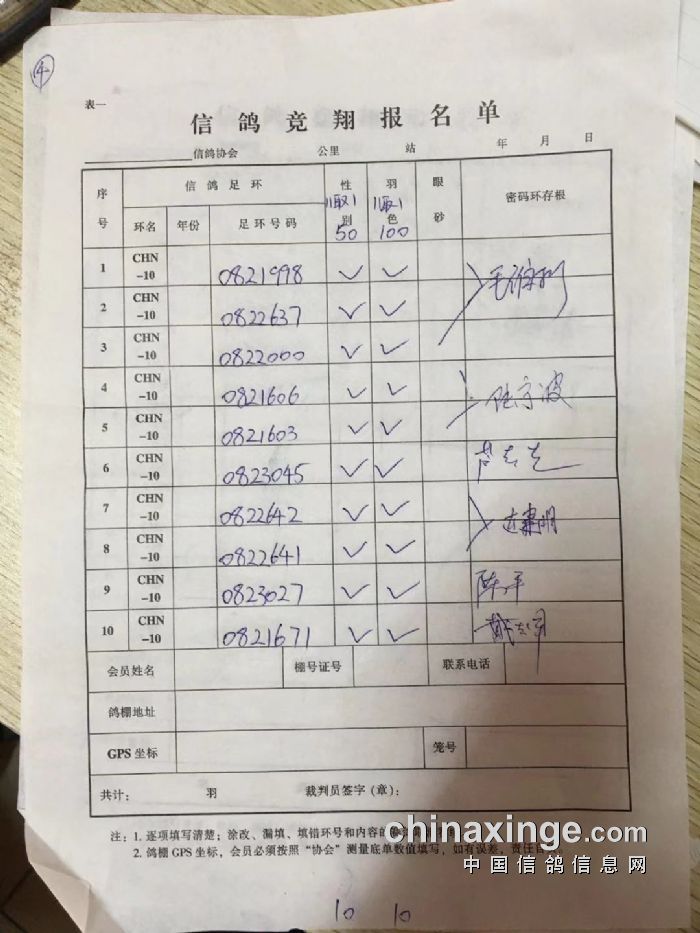 4
表一
信鸽竞翔报名单
信鸽协会 公里 站 年 月 日
序号 信鸽足环 性别 羽色 眼砂 密码环存根
11取1 11取1
环名 年份 足环号码 50 100
1 CHN-10 0821998 ✓ ✓
2 CHN-10 0822637 ✓ ✓
3 CHN-10 0822000 ✓ ✓
4 CHN-10 0821606 ✓ ✓
5 CHN-10 0821603 ✓ ✓
6 CHN-10 0823045 ✓ ✓
7 CHN-10 0822642 ✓ ✓
8 CHN-10 0822641 ✓ ✓
9 CHN-10 0823027 ✓ ✓ 陈平
10 CHN-10 0821671 ✓ ✓
会员姓名 棚号证号 联系电话
鸽棚地址
GPS 坐标 笼号
共计： 羽 裁判员签字（章）：
注：1. 逐项填写清楚；涂改、漏填、填错环号和内容的
2. 鸽棚 GPS 坐标，会员必须按照“协会”测量底单数值填写，如有误差，责任自
chinaxinge.com
中国信鸽信息网
10 10